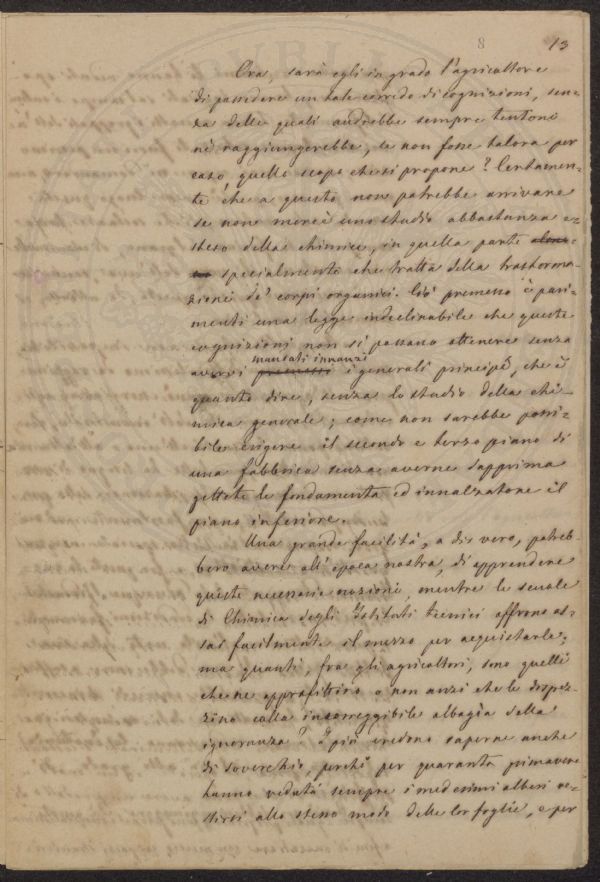 8
13
Ora, sarà egli in grado l'agricoltore
di possedere un tale corredo di cognizioni, sen-
za delle quali andrebbe sempre tentoni
nè raggiungerebbe, se non fosse talora per
caso, quello scopo che si propone? Certamen-
te che a questo non potrebbe arrivare
se non mercè uno studio abbastanza e-
steso della chimica, in quella parte
specialmente che tratta della trasforma-
zione de' corpi organici. Ciò premesso è pari-
menti una legge indeclinabile che queste
cognizioni non si possano ottenere senza
mandati innanzi
avervi premessi i generali principî, che è
quanto dire, senza lo studio della chi-
mica generale; come non sarebbe possi-
bile erigere il secondo e terzo piano di
una fabbrica senza averne dapprima
gettate le fondamenta ed innalzatone il
piano inferiore.
Una grande facilità, a dir vero, potreb-
bero avere all'epoca nostra, di apprendere
queste necessarie nozioni, mentre le scuole
di Chimica degli Istituti tecnici offrono as-
sai facilmente il mezzo per acquistarle;
ma quanti, fra gli agricoltori, sono quelli
che ne approfittino o non anzi che le disprez-
zino colla incorreggibile albagìa della
ignoranza? I più credono saperne anche
di soverchio, perchè per quaranta primavere
hanno veduto sempre i medesimi alberi ve-
stirsi allo stesso modo delle lor foglie, e per